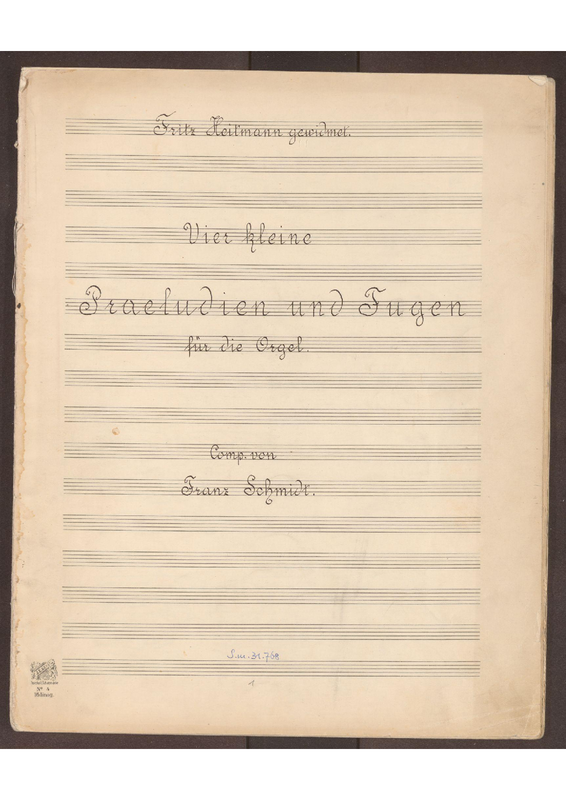 Fritz Heitmann gewidmet.
Vier kleine
Praeludien und Fugen
für die Orgel.
Comp. von
Franz Schmidt.
S.m. 31.768
Nº 4
1